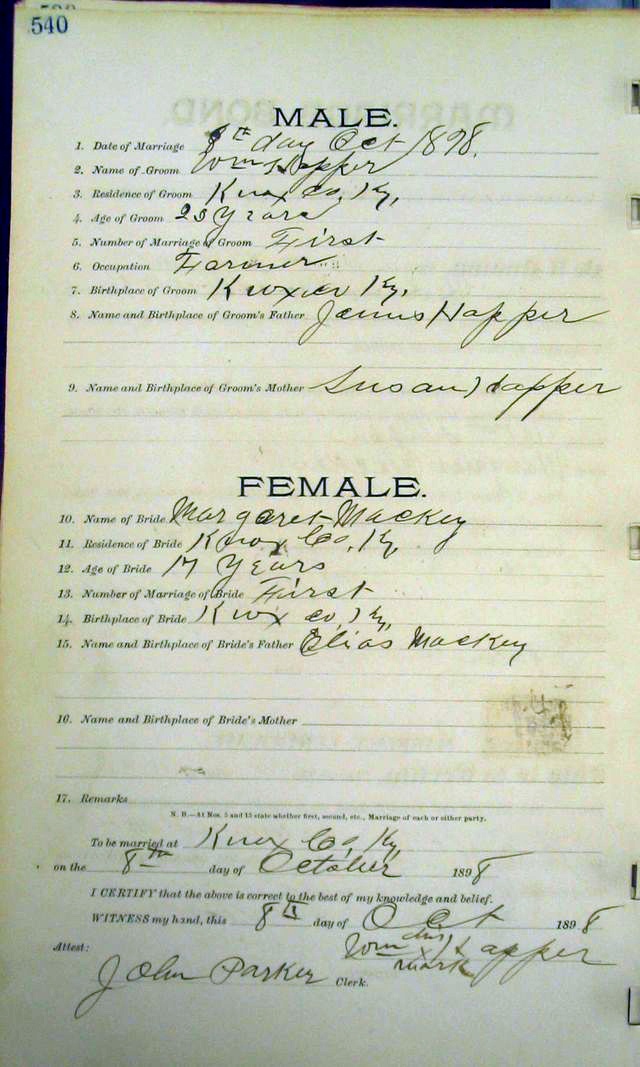 540
MALE.
1. Date of Marriage 8th day Oct 1898.
2. Name of Groom Wm Happer
3. Residence of Groom Knox Co, Ky,
4. Age of Groom 23 Years
5. Number of Marriage of Groom First
6. Occupation Farmer
7. Birthplace of Groom Knox co Ky,
8. Name and Birthplace of Groom's Father James Happer
9. Name and Birthplace of Groom's Mother Susan Happer
FEMALE.
10. Name of Bride Margaret Mackey
11. Residence of Bride Knox Co, Ky
12. Age of Bride 17 Years
13. Number of Marriage of Bride First
14. Birthplace of Bride Knox co, Ky,
15. Name and Birthplace of Bride's Father Elias Mackey
16. Name and Birthplace of Bride's Mother
17. Remarks
N. B.—At Nos. 5 and 13 state whether first, second, etc., Marriage of each or either party.
To be married at Knox Co, Ky,
on the 8th day of October 1898
I CERTIFY that the above is correct to the best of my knowledge and belief.
WITNESS my hand, this 8th day of Oct 1898
Wm his x mark Happer
Attest:
John Parker Clerk.